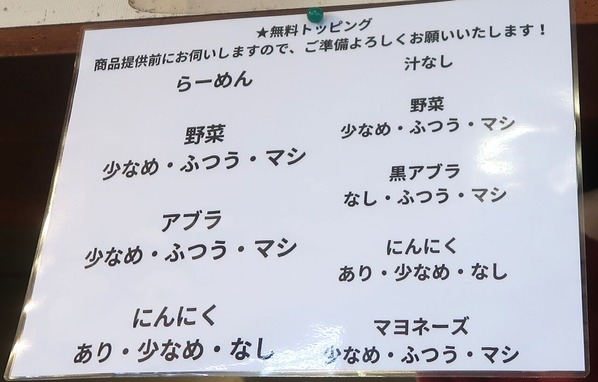 ★無料トッピング
商品提供前にお伺いしますので、ご準備よろしくお願いいたします！
らーめん
野菜
少なめ・ふつう・マシ
アブラ
少なめ・ふつう・マシ
にんにく
あり・少なめ・なし
汁なし
野菜
少なめ・ふつう・マシ
黒アブラ
なし・ふつう・マシ
にんにく
あり・少なめ・なし
マヨネーズ
少なめ・ふつう・マシ